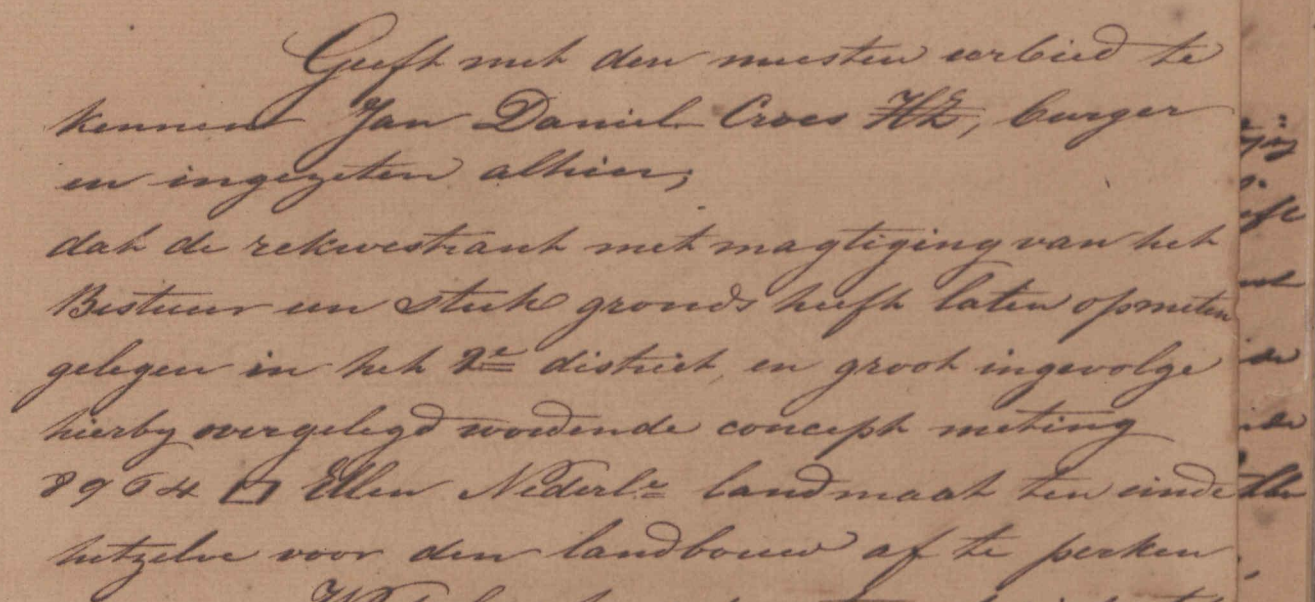 Geeft met den meesten eerbied te
kennen Jan Daniel Croes Hz, burger
en ingezeten alhier;
dat de rekwestrant met magtiging van het
Bestuur een stuk gronds heeft laten opmeten
gelegen in het 2e district, en groot ingevolge
hierby overgelegd wordende concept meting
8964 □ Ellen Nederle landmaat ten einde
hetzelve voor den landbouw af te perken